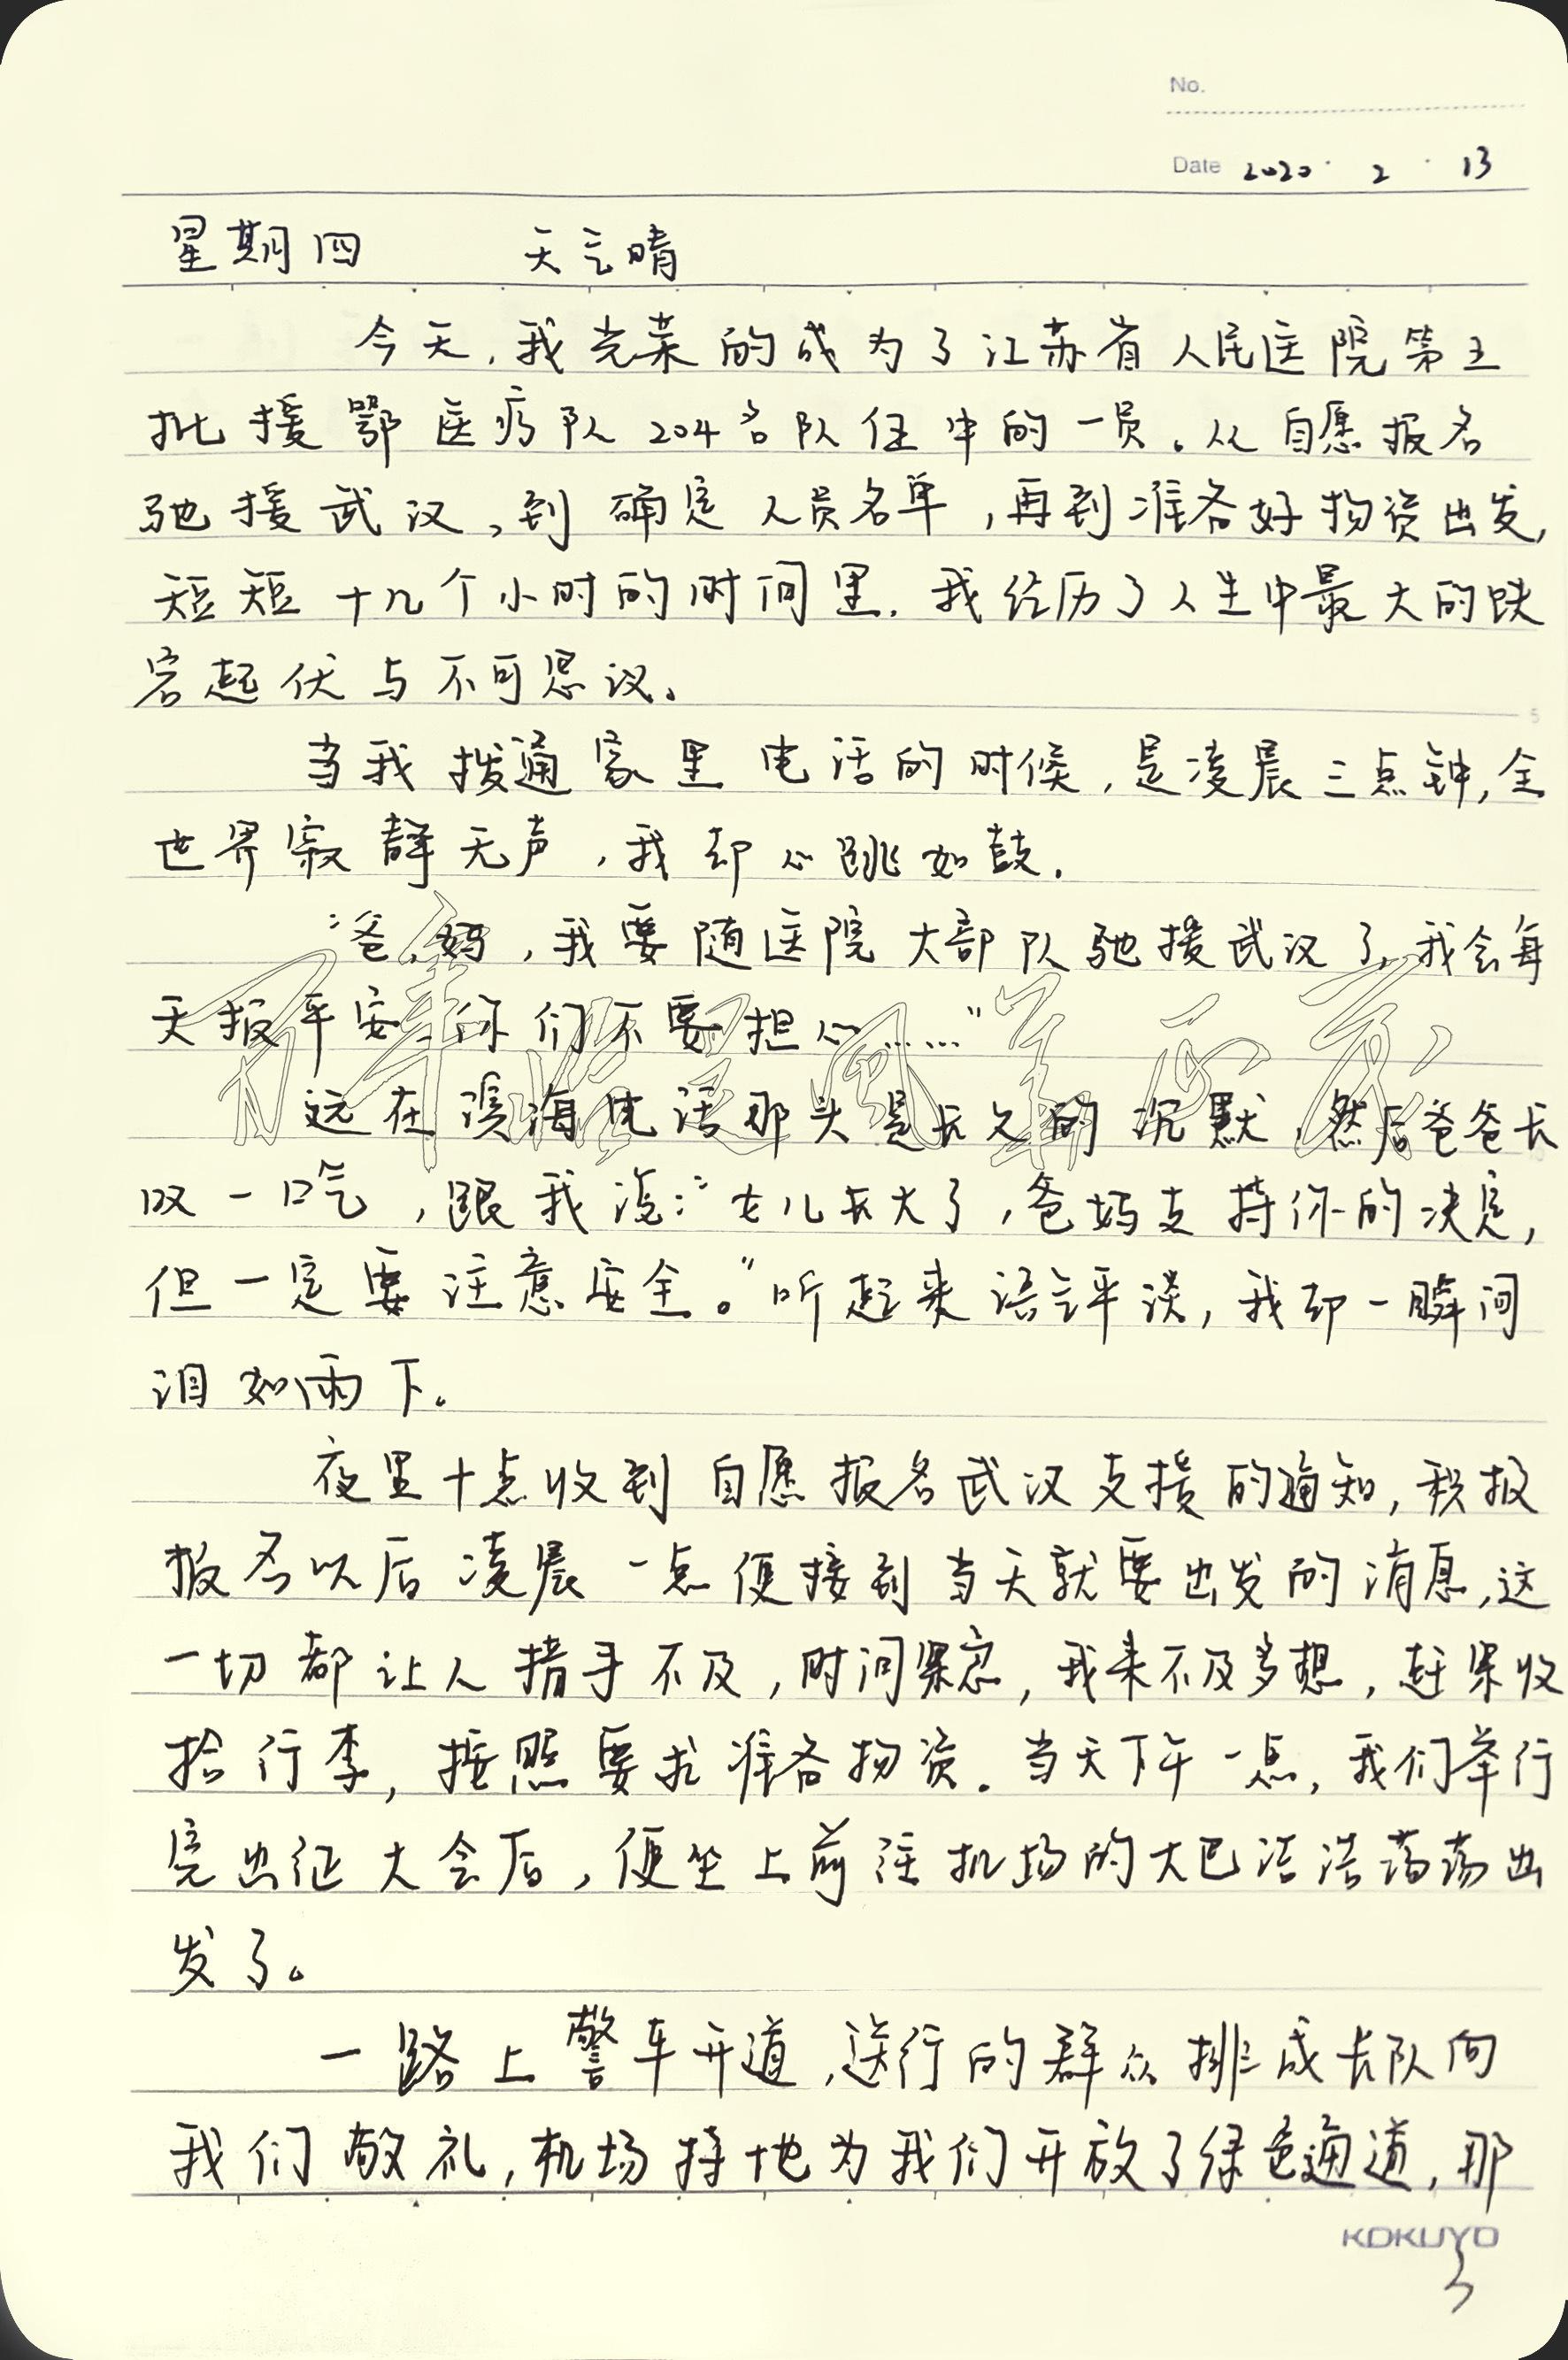 No.
Date 2020 · 2 · 13
星期四 天气晴
今天，我光荣的成为了江苏省人民医院第五
批援鄂医疗队204名队伍中的一员。从自愿报名
驰援武汉，到确定人员名单，再到准备好物资出发，
短短十几个小时的时间里，我经历了人生中最大的跌
宕起伏与不可思议。
当我拨通家里电话的时候，是凌晨三点钟，全
世界寂静无声，我却心跳如鼓。
“爸，妈，我要随医院大部队驰援武汉了，我会每
天报平安，你们不要担心……”
远在滨海电话那头是长久的沉默，然后爸爸长
叹一口气，跟我说：“女儿长大了，爸妈支持你的决定，
但一定要注意安全。”听起来语气平淡，我却一瞬间
泪如雨下。
夜里十点收到自愿报名武汉支援的通知，积报
报名以后凌晨一点便接到当天就要出发的消息，这
一切都让人措手不及，时间紧急，我来不及多想，赶紧收
拾行李，按照要求准备物资。当天下午一点，我们举行
完出征大会后，便坐上前往机场的大巴浩浩荡荡出
发了。
一路上警车开道，送行的群众排成长队向
我们敬礼，机场特地为我们开放了绿色通道，那
KOKUYO
3